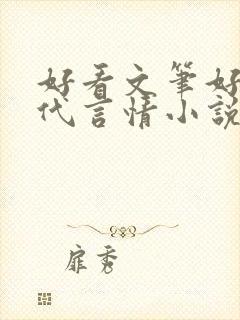 好看文筆好
代言情小說
扉秀